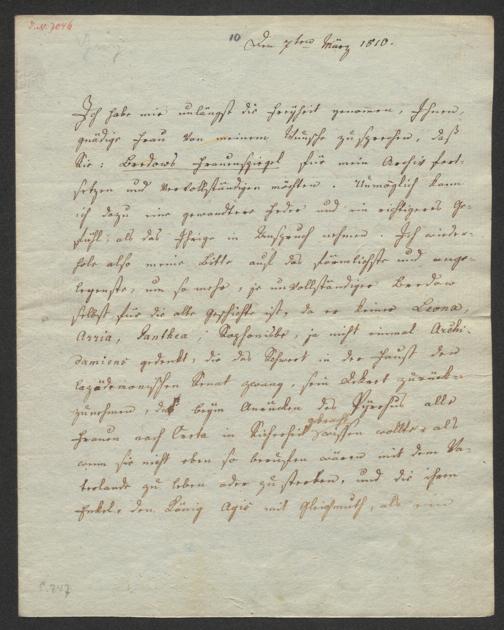 I.N. 7046
10
Den 7ten März 1810.
Ich habe mir unlängst die Freyheit genommen, Ihnen,
gnädige Frau von meinem Wunsche zu sprechen, daß
Sie: Bredows Frauenspiegel für mein Archiv fort-
setzen und vervollständigen möchten. Unmöglich kann
ich dazu eine gewandtere Feder und ein richtigeres Ge-
fühl, als das Ihrige in Anspruch nehmen. Ich wieder-
hole also meine Bitte auf das förmlichste und ange-
legenste, um so mehr, je unvollständiger Bredow
selbst für die alte Geschichte ist, da er keiner Leona,
Arria, Panthea, Sophonisbe, ja nicht einmal Archi-
damiens gedenkt, die das Schwert in der Faust den
lazedämonischen Senat zwang, sein Dekret zurück-
zunehmen, daß beym Anrücken des Pyrrhus alle
Frauen nach Creta in Sicherheit gebracht wissen wollte, als
wenn sie nicht eben so berufen wären mit dem Va-
terlande zu leben oder zu sterben, und die ihrem
Enkel, den König Agis mit Gleichmuth, als ein